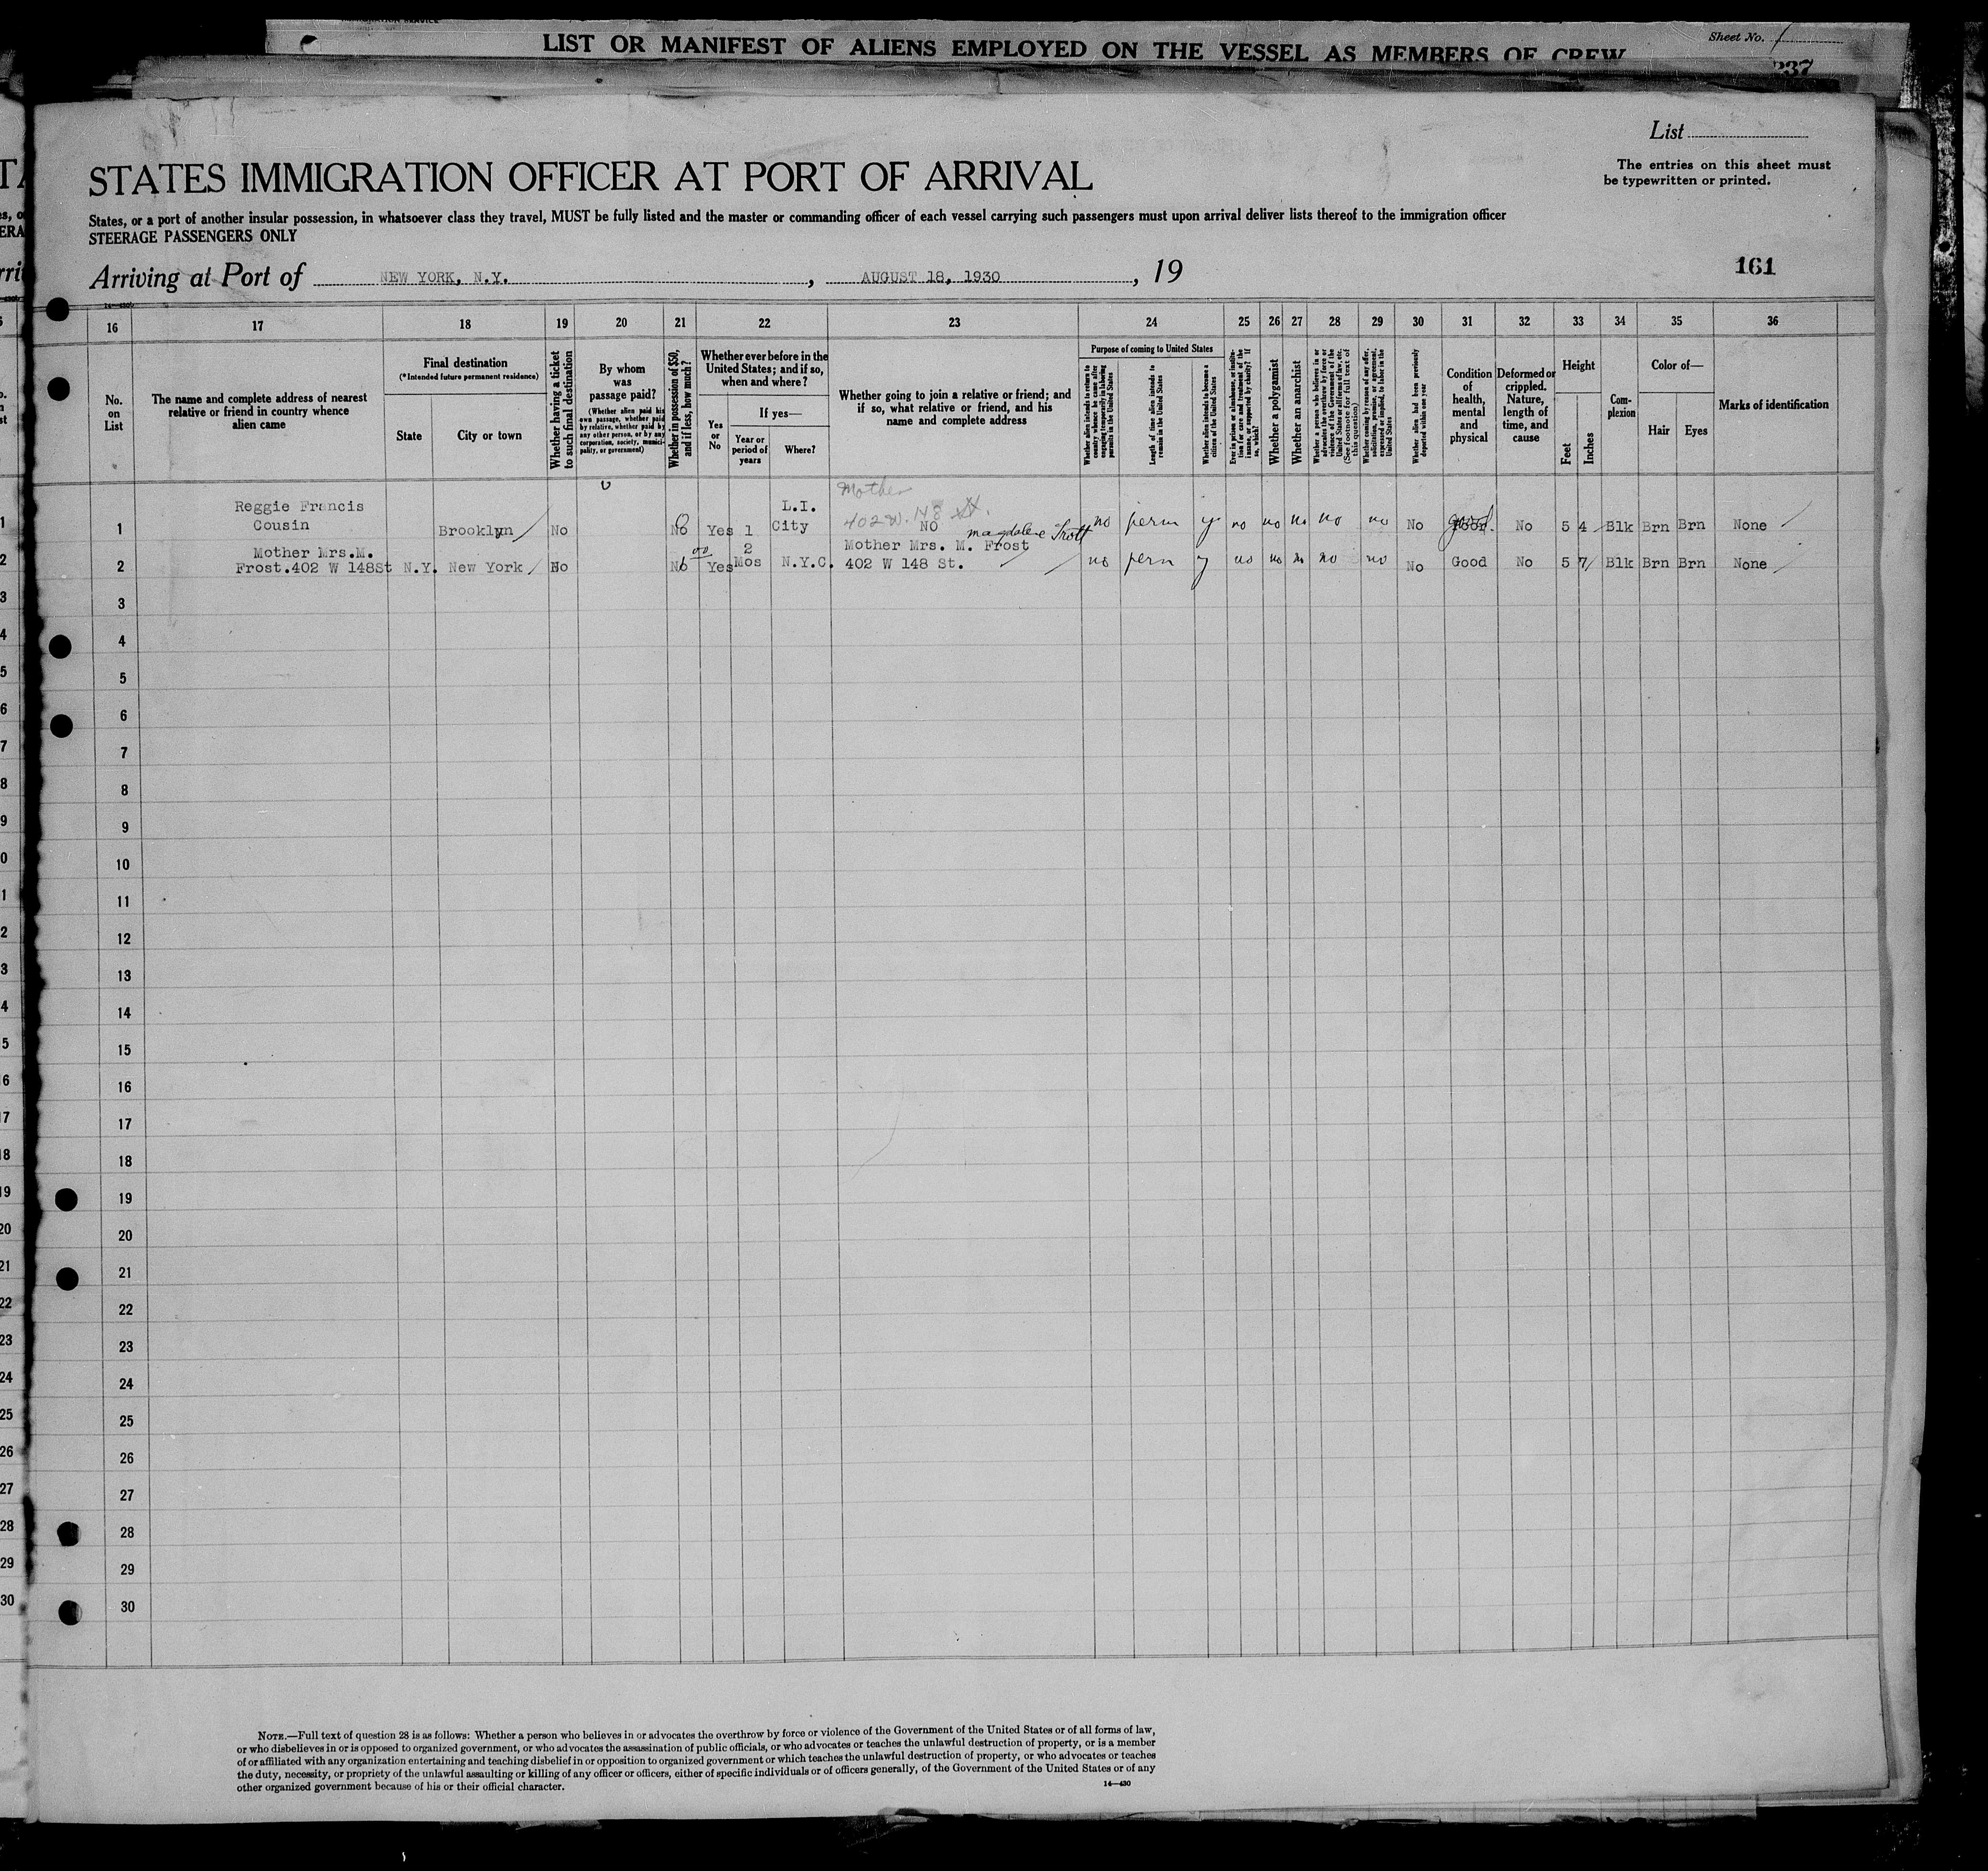 LIST OR MANIFEST OF ALIENS EMPLOYED ON THE VESSEL AS MEMBERS OF CREW
Sheet No. 1
237
List
STATES IMMIGRATION OFFICER AT PORT OF ARRIVAL
The entries on this sheet must
be typewritten or printed.
States, or a port of another insular possession, in whatsoever class they travel, MUST be fully listed and the master or commanding officer of each vessel carrying such passengers must upon arrival deliver lists thereof to the immigration officer
STEERAGE PASSENGERS ONLY
Arriving at Port of NEW YORK, N.Y. , AUGUST 18, 1930 , 19
161
16 17 18 19 20 21 22 23 24 25 26 27 28 29 30 31 32 33 34 35 36
No. on List
The name and complete address of nearest relative or friend in country whence alien came
Final destination
(*Intended future permanent residence)
State
City or town
Whether having a ticket to such final destination
By whom was passage paid?
(Whether alien paid his own passage, whether paid by relative, whether paid by any other person, or by any corporation, society, municipality, or government)
Whether in possession of $50, and if less, how much?
Whether ever before in the United States; and if so, when and where?
Yes or No
If yes—
Year or period of years
Where?
Whether going to join a relative or friend; and if so, what relative or friend, and his name and complete address
Purpose of coming to United States
Whether alien intends to return to country whence he came after engaging temporarily in laboring pursuits in the United States
Length of time alien intends to remain in the United States
Whether alien intends to become a citizen of the United States
Ever in prison or almshouse, or institution for care and treatment of the insane, or supported by charity? If so, which?
Whether a polygamist
Whether an anarchist
Whether a person who believes in or advocates the overthrow by force or violence of the Government of the United States or all forms of law, etc. (See footnote for full text of this question)
Whether coming by reason of any offer, solicitation, promise, or agreement, expressed or implied, to labor in the United States
Whether alien had been previously deported within one year
Condition of health, mental and physical
Deformed or crippled. Nature, length of time, and cause
Height
Feet
Inches
Complexion
Color of—
Hair
Eyes
Marks of identification
Mother
402 W. 148 St.
Reggie Francis L.I.
1 Cousin Brooklyn No No 0 Yes 1 City NO no perm y no no no no no No good No 5 4 Blk Brn Brn None
Magdalene Trott
Mother Mrs.M. 2 Mother Mrs. M. Frost
2 Frost.402 W 148St N.Y. New York No No Yes Mos N.Y.C. 402 W 148 St. no perm y no no no no no No Good No 5 7 Blk Brn Brn None
3
4
5
6
7
8
9
10
11
12
13
14
15
16
17
18
19
20
21
22
23
24
25
26
27
28
29
30
NOTE.—Full text of question 28 is as follows: Whether a person who believes in or advocates the overthrow by force or violence of the Government of the United States or of all forms of law,
or who disbelieves in or is opposed to organized government, or who advocates the assassination of public officials, or who advocates or teaches the unlawful destruction of property, or is a member
of or affiliated with any organization entertaining and teaching disbelief in or opposition to organized government or which teaches the unlawful destruction of property, or who advocates or teaches
the duty, necessity, or propriety of the unlawful assaulting or killing of any officer or officers, either of specific individuals or of officers generally, of the Government of the United States or of any
other organized government because of his or their official character.
14—430